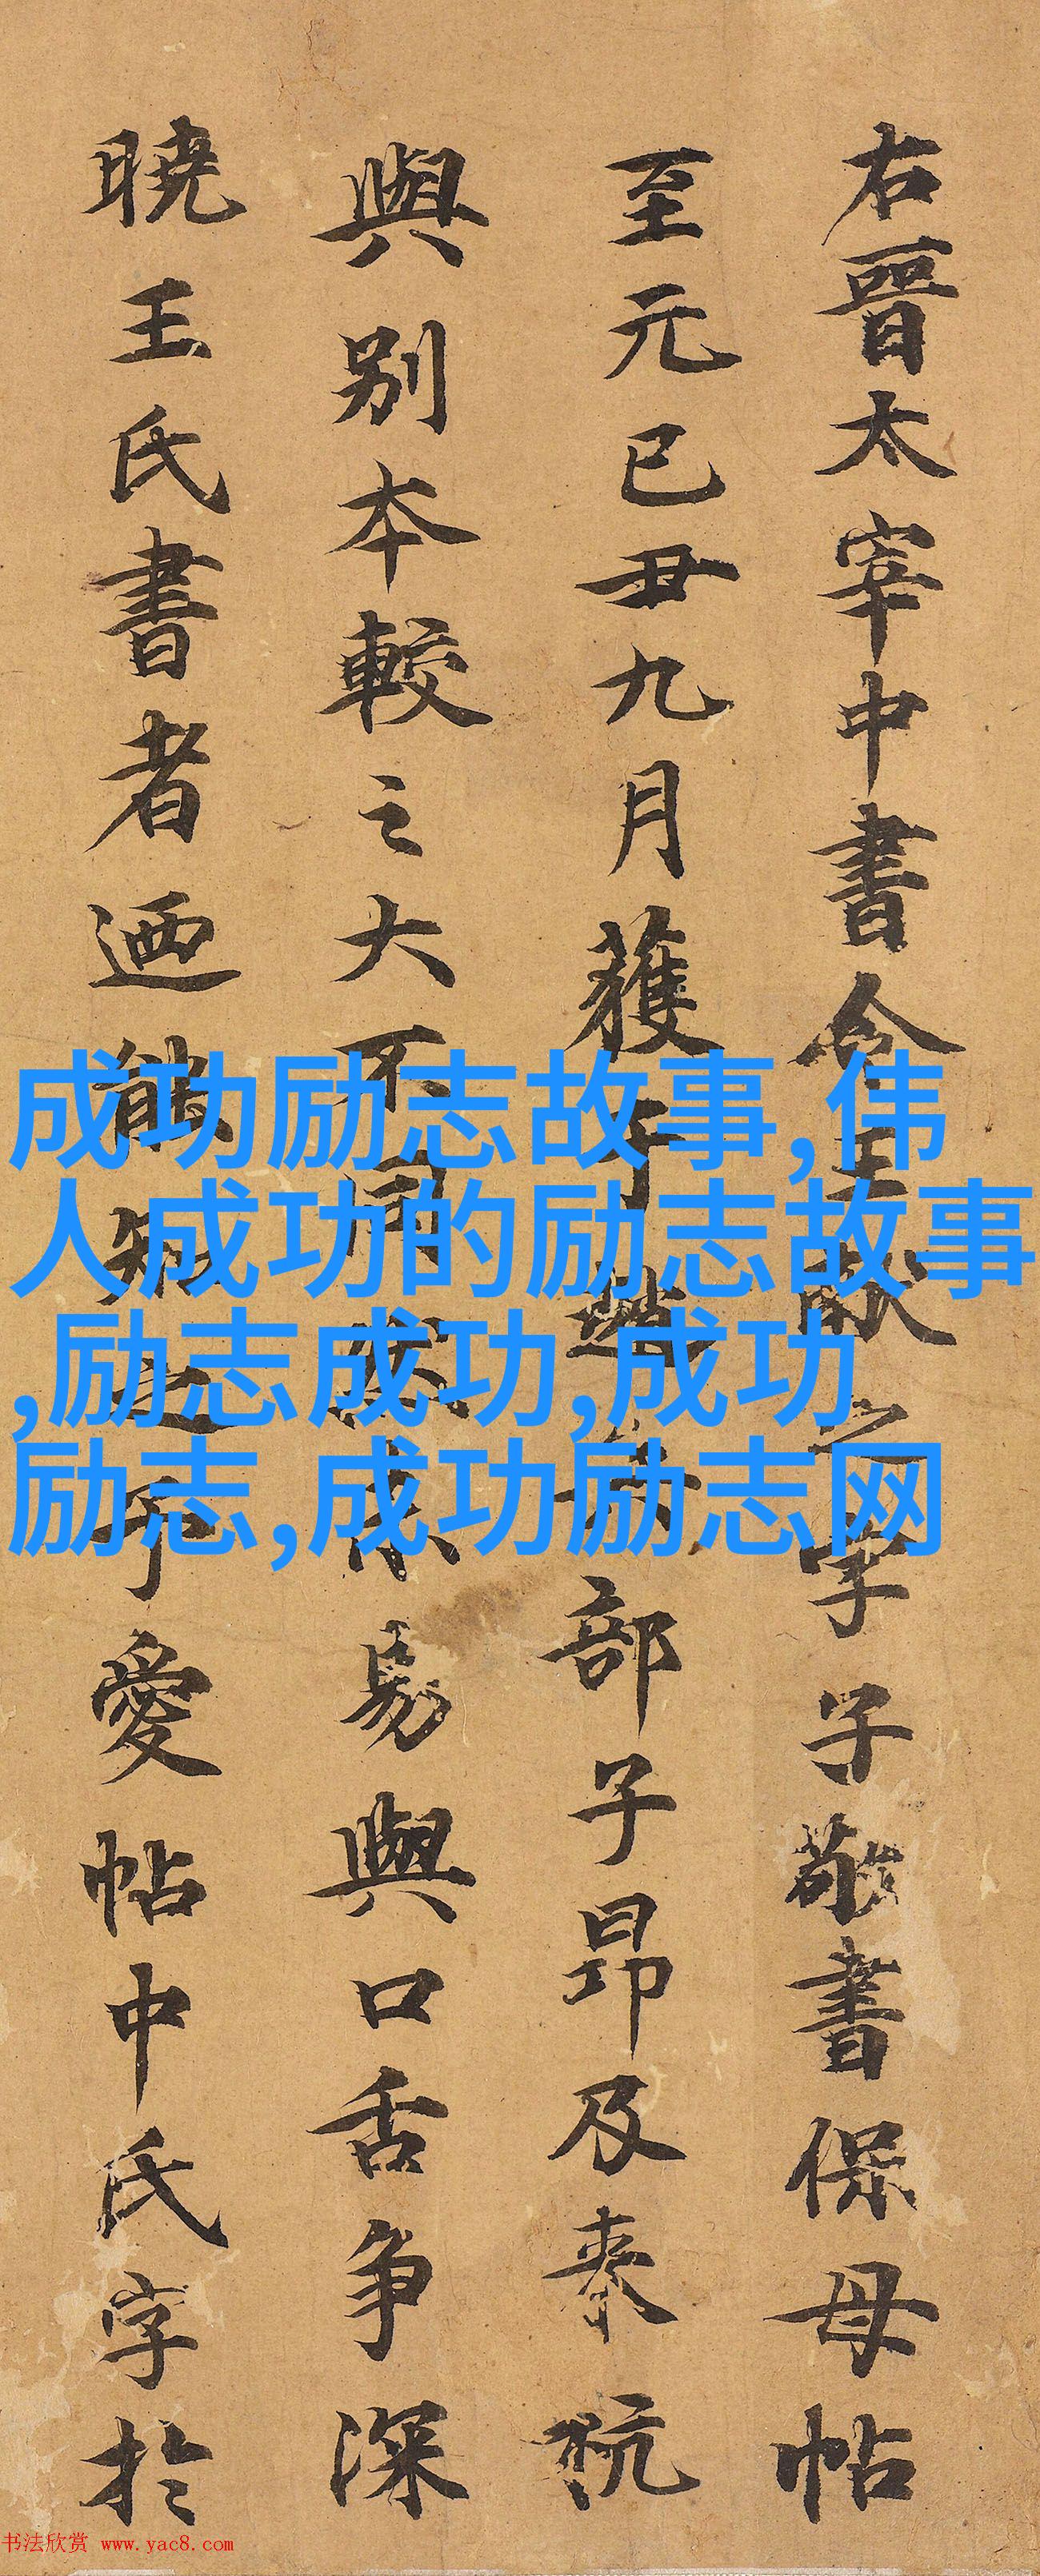 右晉太宰中書令王獻之字子敬書保母帖
至元己丑九月獲于趙兵部子昂及泰
與別本較之大不同然未易與口舌爭深
曉王氏書者迺能知之予愛帖中氏字於
成功励志故事,伟
人成功的励志故事
,励志成功,成功
励志,成功励志网
书法欣赏 www.yac8.com